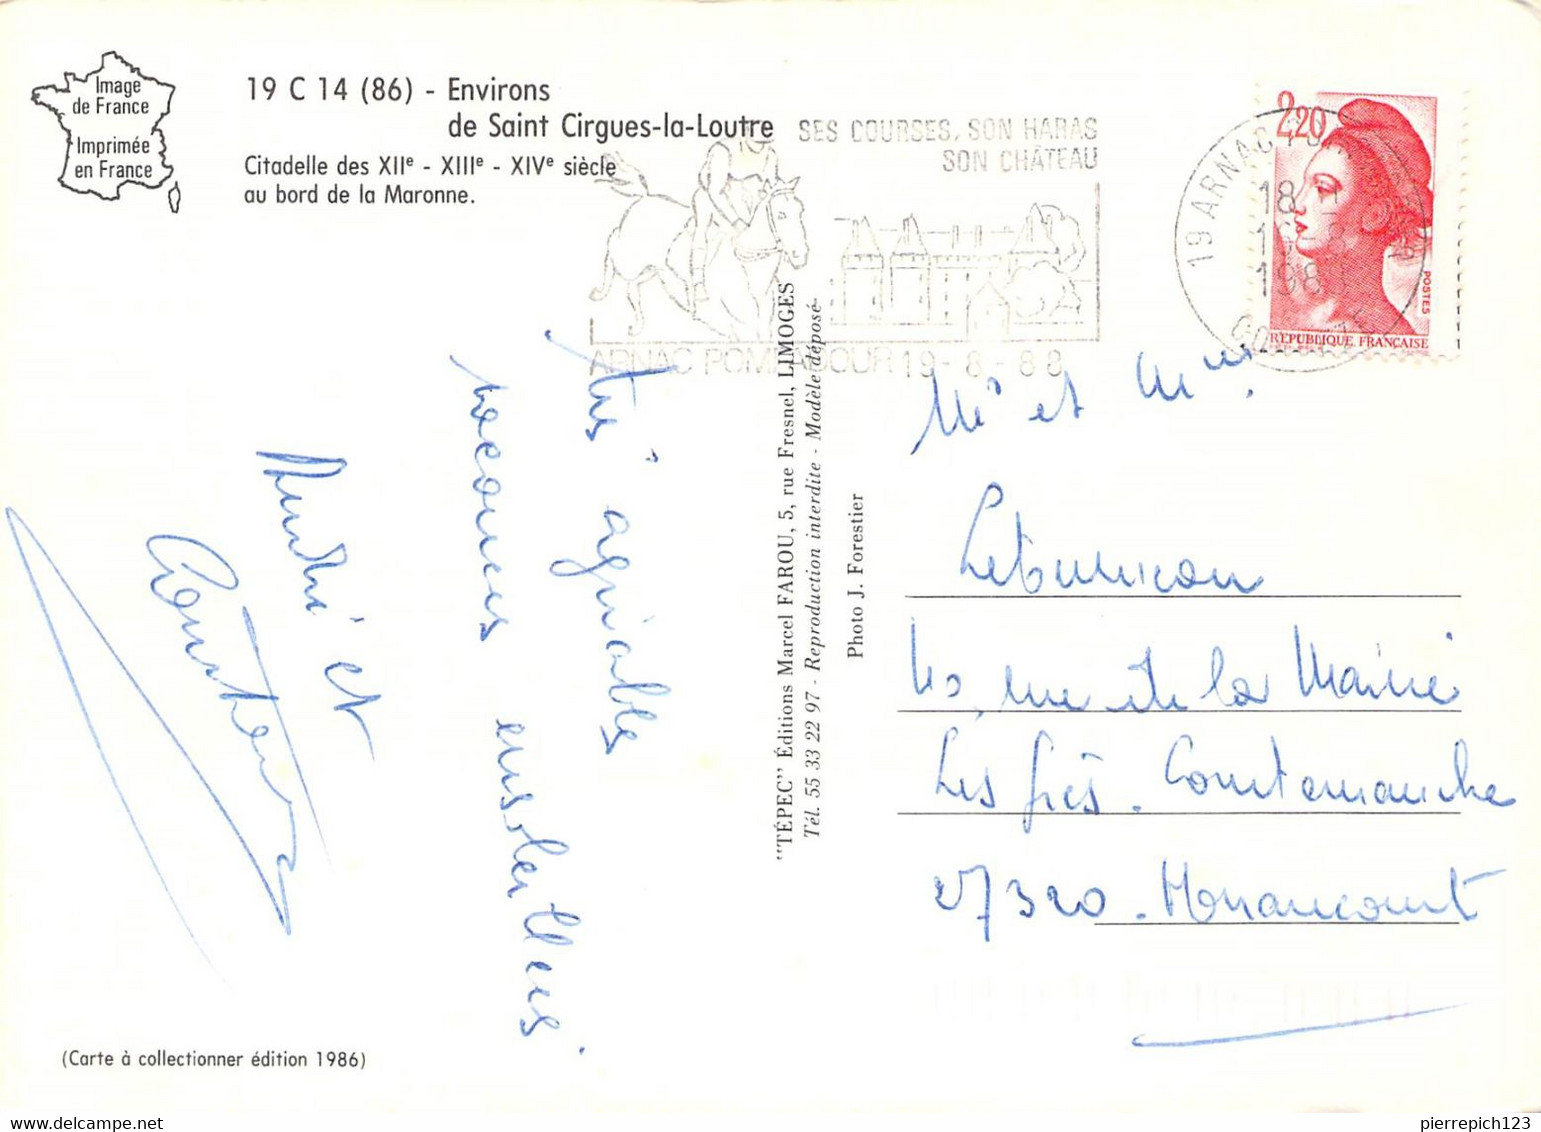 Image
de France
Imprimée
en France
19 C 14 (86) - Environs
de Saint Cirgues-la-Loutre
Citadelle des XIIe - XIIIe - XIVe siècle
au bord de la Maronne.
SES COURSES, SON HARAS
SON CHÂTEAU
ARNAC POMPADOUR 19-8-88
19 ARNAC POM
18
198
2,20
POSTES
REPUBLIQUE FRANCAISE
Très agréables
vacances ensoleillées.
André et
"TÉPEC" Éditions Marcel FAROU, 5, rue Fresnel, LIMOGES
Tél. 55 33 22 97 - Reproduction interdite - Modèle déposé
Photo J. Forestier
Mr et Mme
rue de la Mairie
Les Grès. Courtemanche
27320. Nonancourt
(Carte à collectionner édition 1986)
pierrepich123